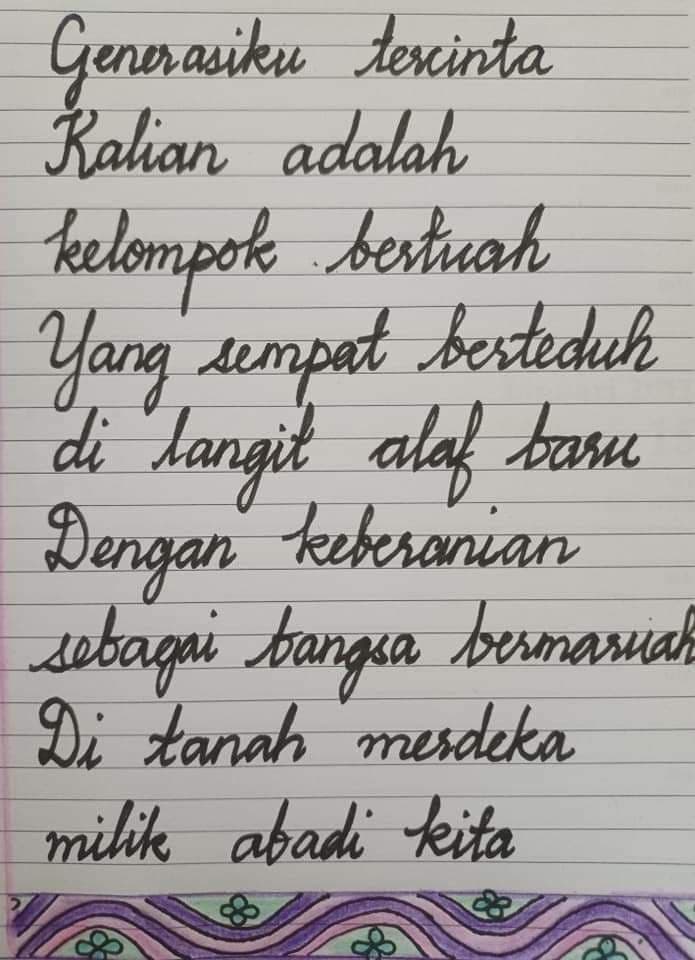 Generasiku tercinta
Kalian adalah
kelompok bertuah
Yang sempat berteduh
di langit alaf baru
Dengan keberanian
sebagai bangsa bermaruah
Di tanah merdeka
milik abadi kita